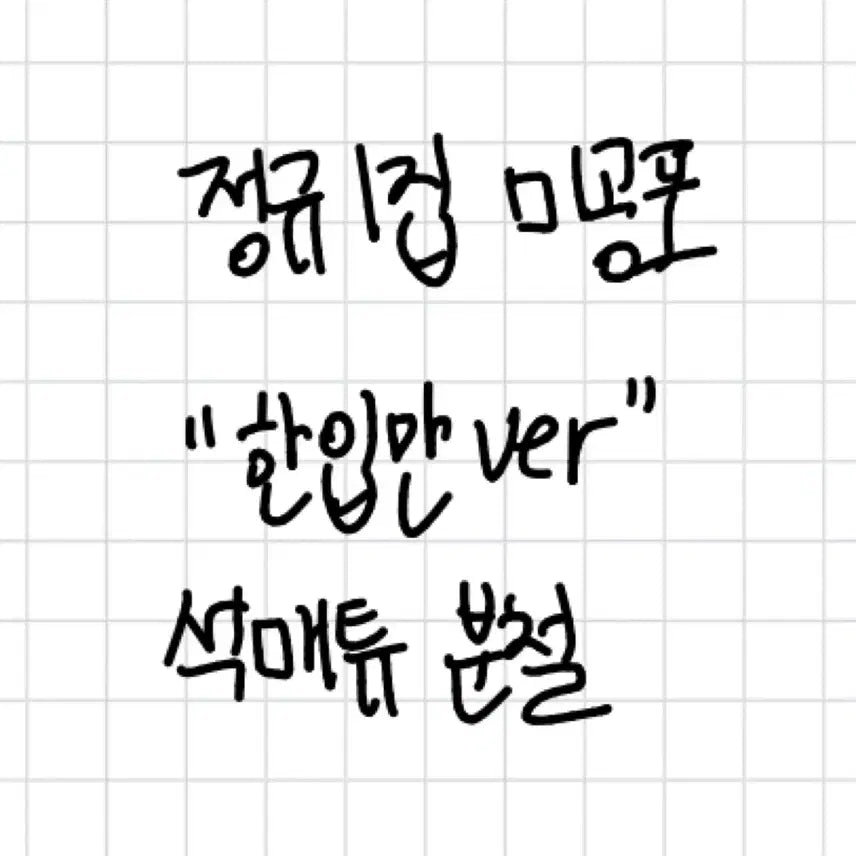 정규 1집 미공포
"한입만 ver"
석매튜 분철